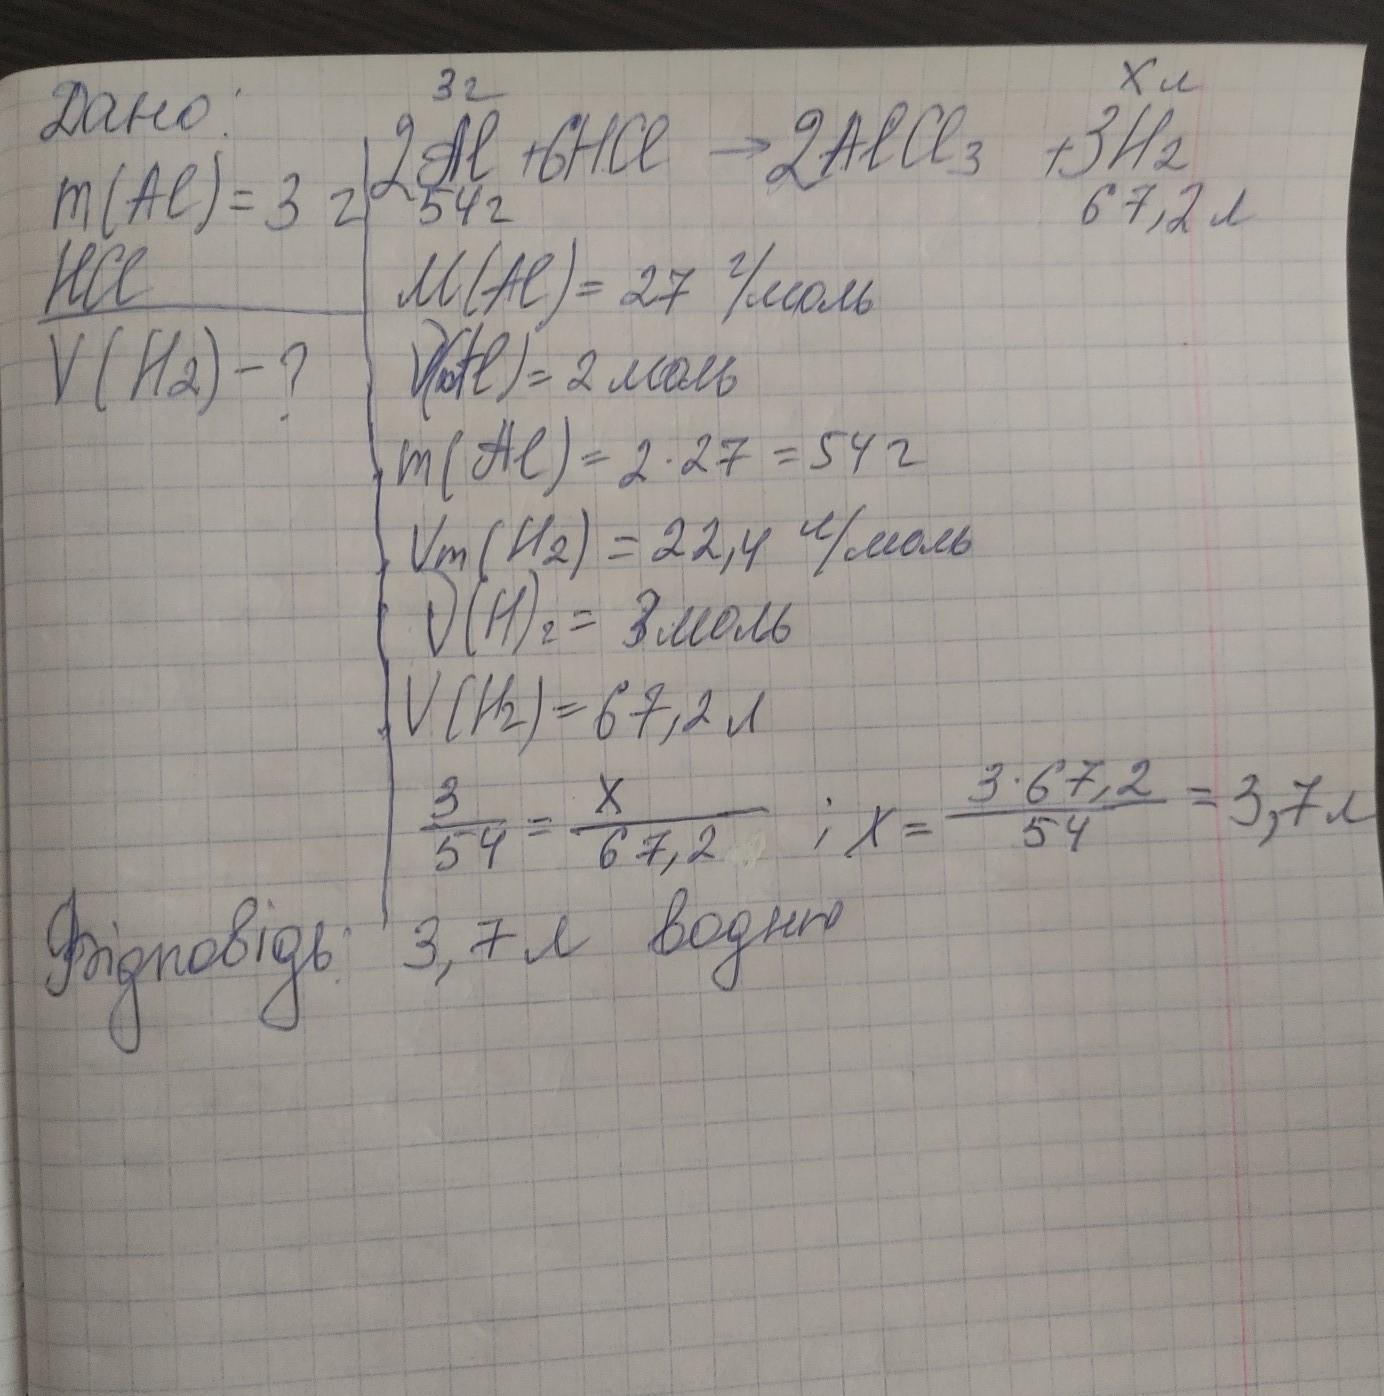 Дано:
m(Al) = 3 г
HCl
V(H2) - ?
3г
x л
2Al + 6HCl → 2AlCl3 + 3H2
54г
67,2 л
M(Al) = 27 г/моль
ν(Al) = 2 моль
m(Al) = 2·27 = 54 г
Vm(H2) = 22,4 л/моль
ν(H)2 = 3 моль
V(H2) = 67,2 л
3/54 = x/67,2 ; x = 3·67,2/54 = 3,7 л
Відповідь: 3,7 л водню